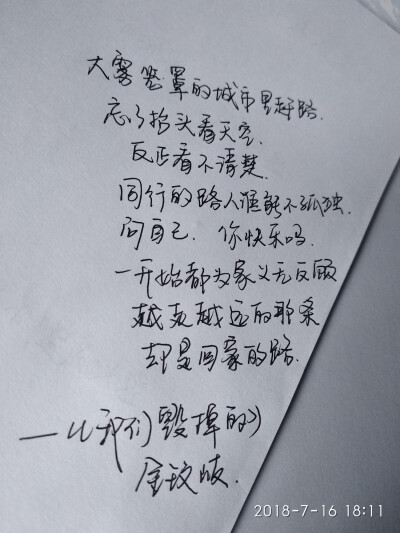 大雾笼罩的城市里赶路.
忘了抬头看天空.
反正看不清楚.
同行的路人谁能不孤独.
问自己. 你快乐吗.
一开始都为家义无反顾
越走越远的那条
却是回家的路.
——《我们毁掉的》
金玟岐.
2018-7-16 18:11